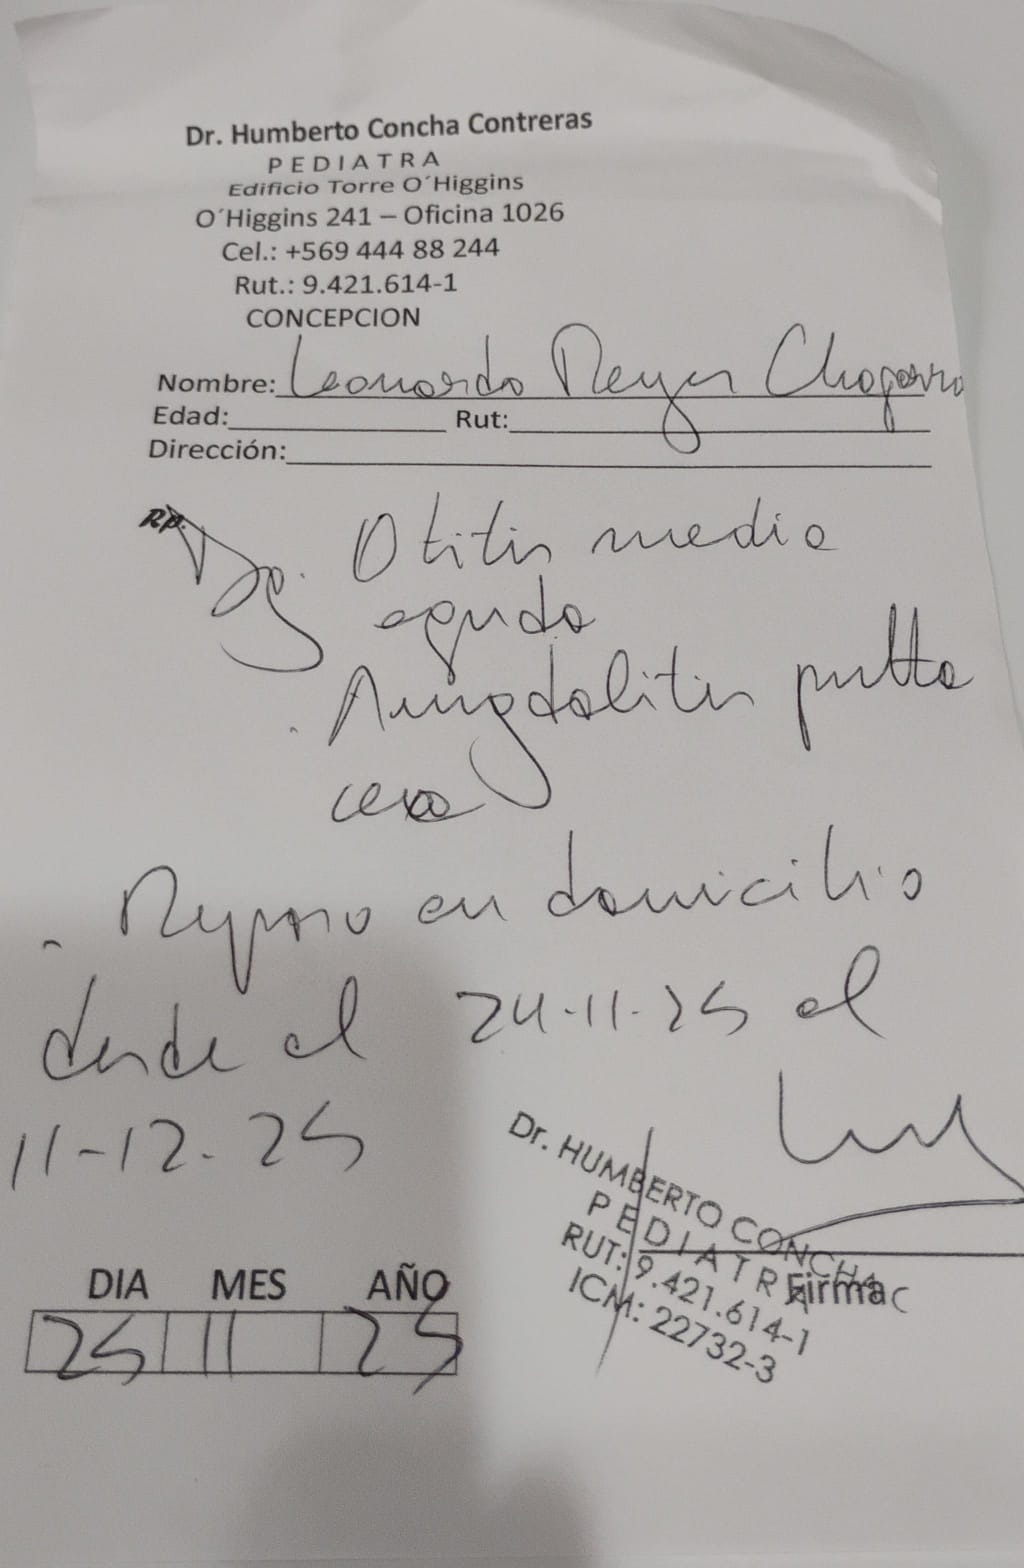 Dr. Humberto Concha Contreras
PEDIATRA
Edificio Torre O´Higgins
O´Higgins 241 – Oficina 1026
Cel.: +569 444 88 244
Rut.: 9.421.614-1
CONCEPCION
Nombre: Leonardo Reyes Chaparro
Edad: Rut:
Dirección:
Rp.
Dg. Otitis media
aguda
. Amigdalitis pultá
cea
. Reposo en domicilio
desde el 24-11-25 al
11-12-25
Dr. HUMBERTO CONCHA
PEDIATRA
RUT: 9.421.614-1
ICM: 22732-3
Firma
DIA MES AÑO
25 11 25